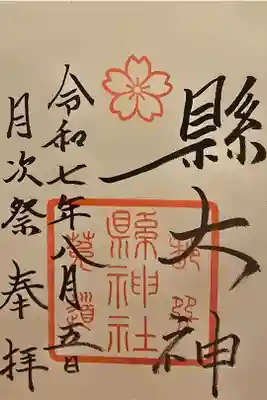 縣大神
縣神社
菟道
令和七年八月五日
月次祭 奉拝